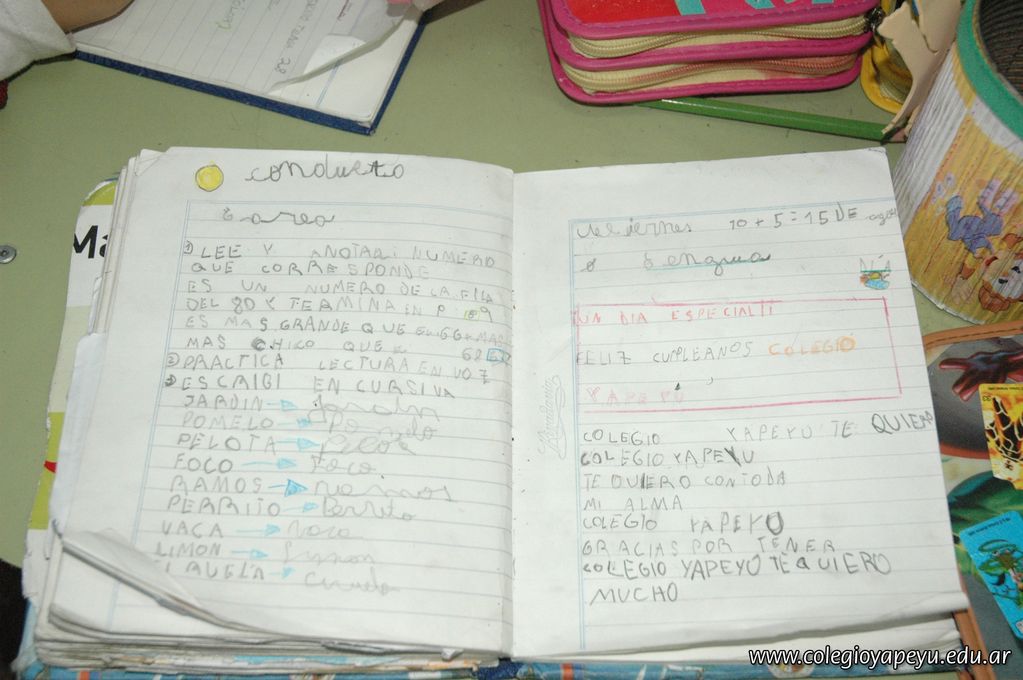 Ma
conducto
Tarea
① LEE Y ANOTAR: NUMERO
QUE CORRESPONDE
ES UN NUMERO DE LA FILA
DEL 80 Y TERMINA EN 9 89
ES MAS GRANDE QUE 66 Y MAS
MAS CHICO QUE 68
② PRACTICA LECTURA EN VOZ
③ ESCRIBI EN CURSIVA
JARDIN Jardin
POMELO Pomelo
PELOTA
FOCO Foco
RAMOS ramos
PERRITO Perrito
VACA Vaca
LIMON Limon
CIRUELA Ciruela
viernes 10+5=15 DE
Lengua
UN DIA ESPECIAL!!
FELIZ CUMPLEAÑOS COLEGIO
YAPEYÚ
COLEGIO YAPEYU TE QUIERO
COLEGIO YAPEYU
TE QUIERO CON TODA
MI ALMA
COLEGIO YAPEYU
GRACIAS POR TENER
COLEGIO YAPEYÚ TE QUIERO
MUCHO
Rivadavia
www.colegioyapeyu.edu.ar